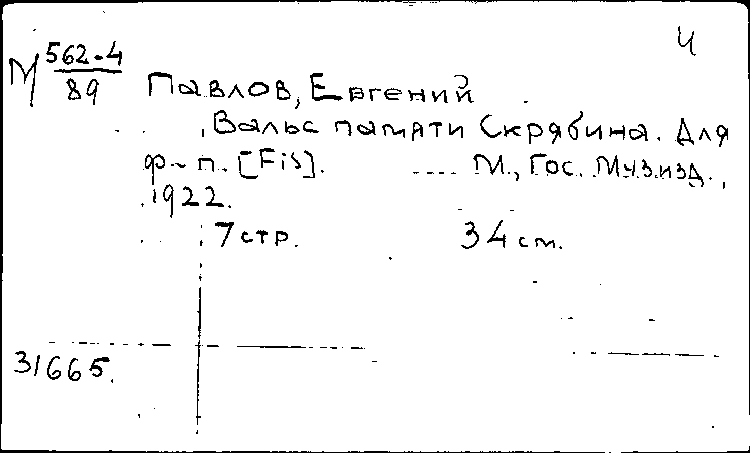 Ч
М 562-4/89
Павлов, Евгений
Вальс памяти Скрябина. Для
ф-п. [Fis]. М., Гос. Муз.изд.,
1922.
7 стр. 34 см.
31665.